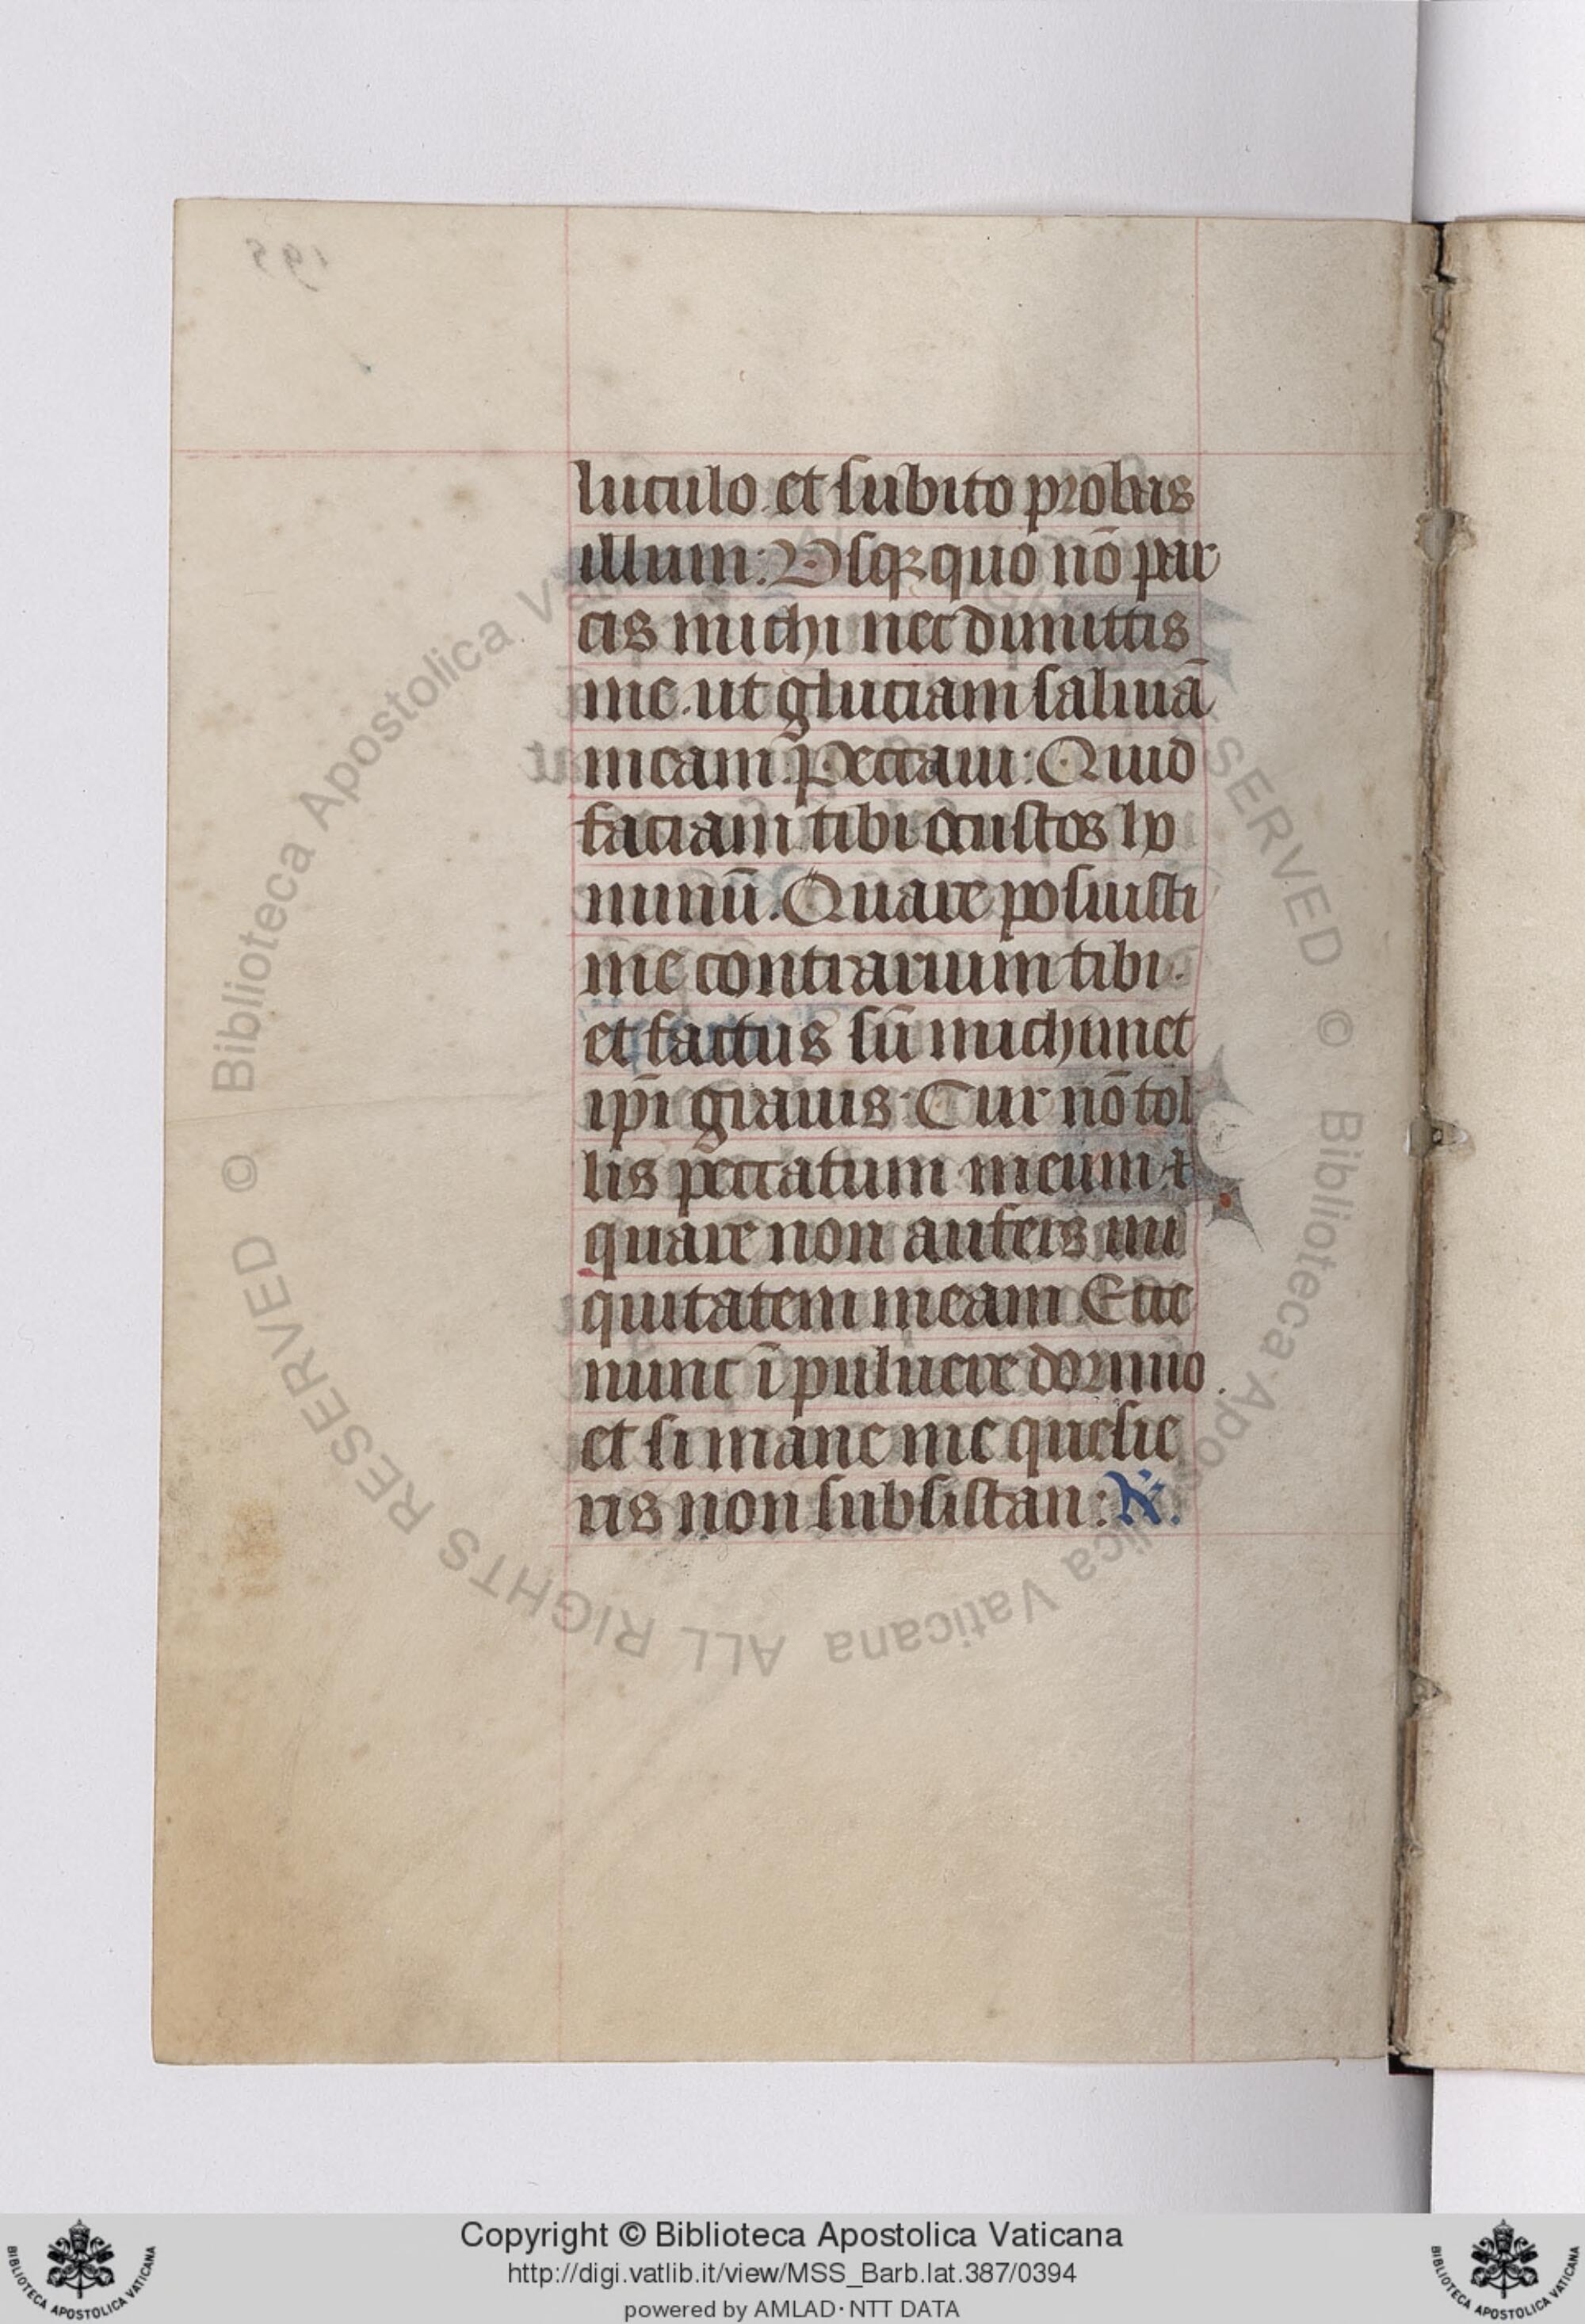 luculo et subito probas
illum: Usqꝫ quo nō par
cis michi nec dimittis
me. ut gluciam saliuā
meam. Peccaui: Quid
faciam tibi o custos ho
minū. Quare posuisti
me contrarium tibi.
et factus sū michimet
ip̄i grauis. Cur nō tol
lis peccatum meum ⁊
quare non aufers ini
quitatem meam. Ecce
nunc ī puluere dormio.
et si mane me quesie
ris non subsistam: R̷.
195
© Biblioteca Apostolica Vaticana ALL RIGHTS RESERVED © Biblioteca Apostolica Vaticana ALL RIGHTS RESERVED
Copyright © Biblioteca Apostolica Vaticana
http://digi.vatlib.it/view/MSS_Barb.lat.387/0394
powered by AMLAD · NTT DATA
BIBLIOTECA APOSTOLICA VATICANA
BIBLIOTECA APOSTOLICA VATICANA